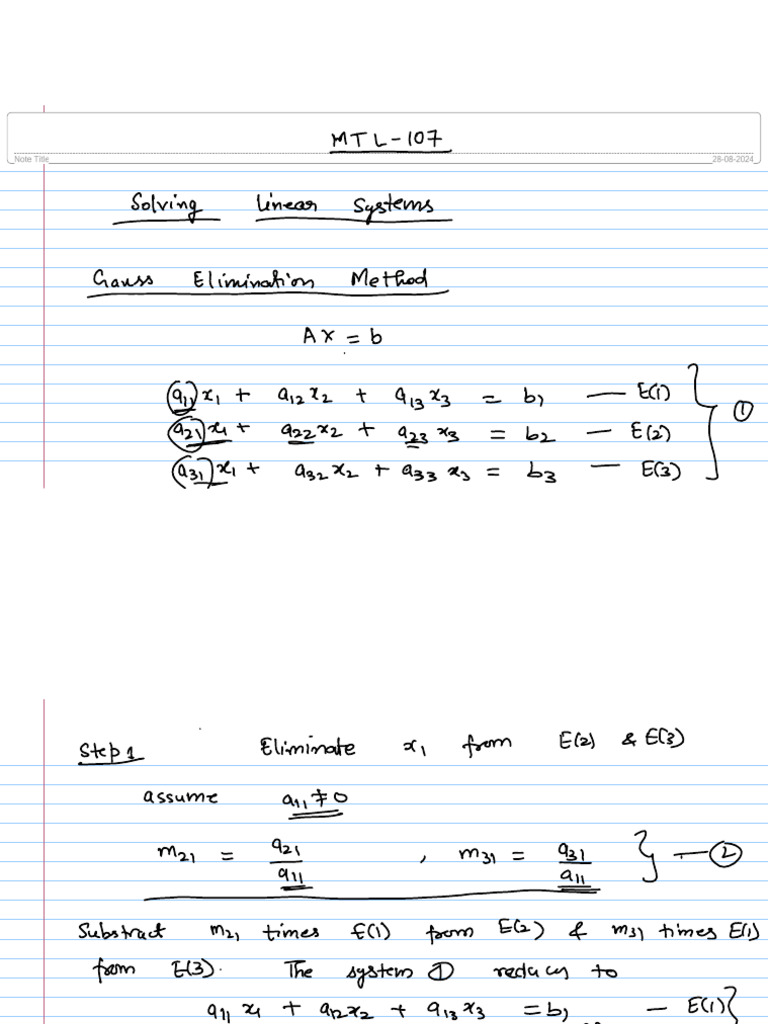 MTL-107
Note Title 28-08-2024
Solving Linear Systems
Gauss Elimination Method
Ax = b
a₁₁x₁ + a₁₂x₂ + a₁₃x₃ = b₁ — E(1)
a₂₁x₁ + a₂₂x₂ + a₂₃x₃ = b₂ — E(2) } ①
a₃₁x₁ + a₃₂x₂ + a₃₃x₃ = b₃ — E(3)
Step 1 Eliminate x₁ from E(2) & E(3)
assume a₁₁ ≠ 0
m₂₁ = a₂₁/a₁₁ , m₃₁ = a₃₁/a₁₁ } — ②
Substract m₂₁ times E(1) from E(2) & m₃₁ times E(1)
from E(3). The system ① reduces to
a₁₁x₁ + a₁₂x₂ + a₁₃x₃ = b₁ — E(1) }